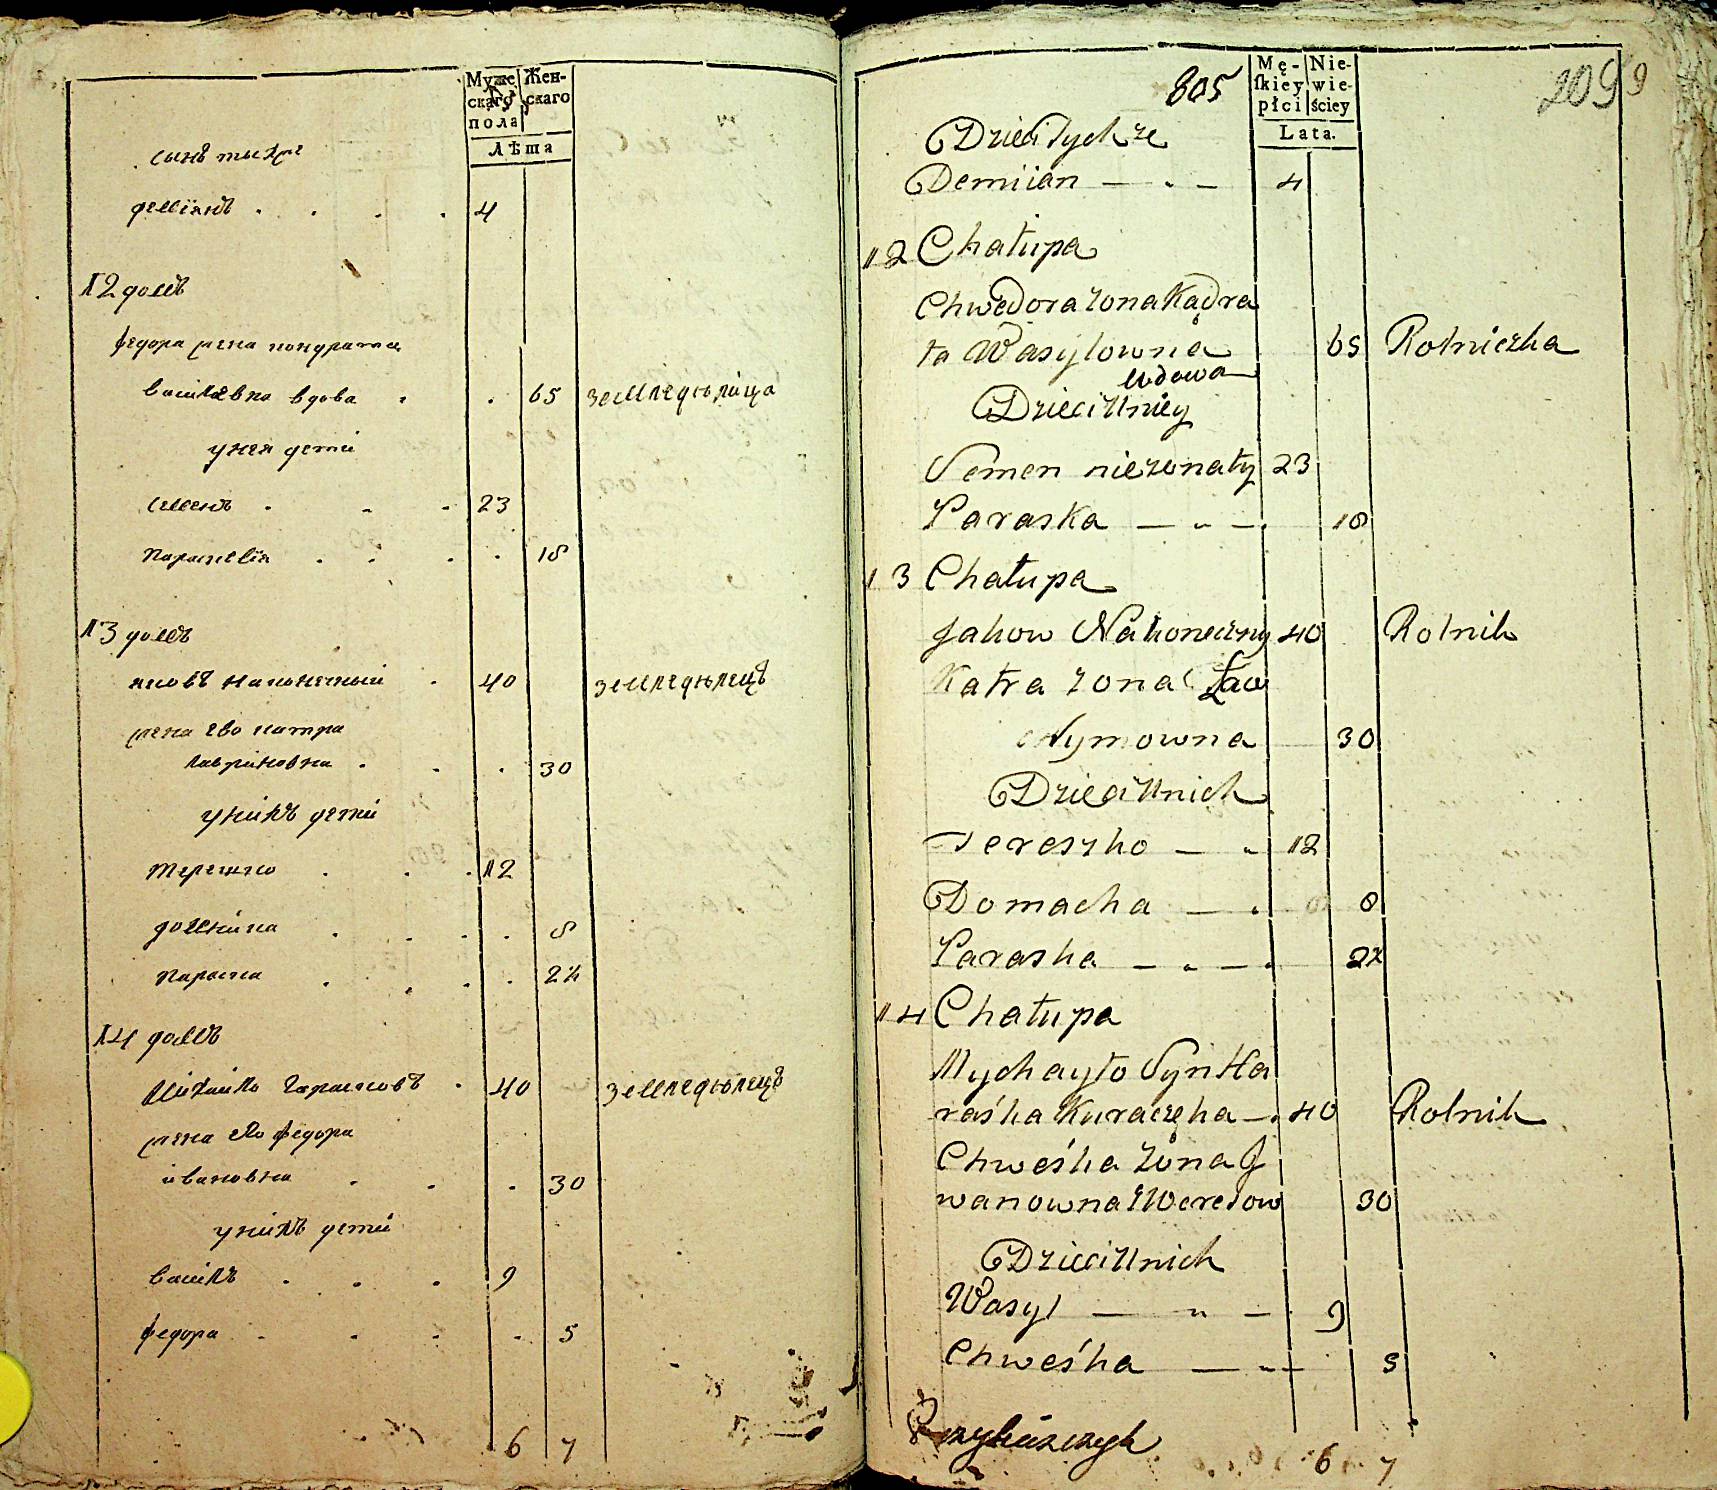 Муже Жен-
скаго скаго
пола
Лѣта
сынъ тыхже
демїянъ . . . . 4
12 домъ
федора жена кондратта
василевна вдова . . 65 земледѣлица
унея дети
семенъ . . . 23
параскевїя . . . . 18
13 домъ
яковъ наконечный . 40 земледѣлецъ
жена ево катра
лавриновна . . . 30
унихъ дети
терешко . . . 12
домникиа . . . . 8
параска . . . . 2 1/2
14 домъ
михайло гарасковъ . 40 земледѣлецъ
жена его федора
ивановна . . . 30
унихъ дети
василь . . . 9
федора . . . . 5
6 7
805
209 9
Mę- Nie-
skiey wie-
płci ściey
Lata.
Dzieci tychże
Demiian — . — 4
12 Chałupa
Chwedora żona Kądra
ta Wasylowna 65 Rolniczka
wdowa
Dzieci u niey
Semen nieżonaty 23
Paraska — „ — . 18
13 Chałupa
Jakow Nakoneczny 40 Rolnik
Katra żona Ław
rymowna 30
Dzieci u nich
Tereszko — „ 12
Domacha — . 8
Paraska — „ — . 2 1/2
14 Chałupa
Mychayło Syn Ha
raśka Kuraczka — . 40 Rolnik
Chweśka żona J
wanowna 30
Dzieci u nich
Wasyl — „ — 9
Chweśka — „ — 5
6 7